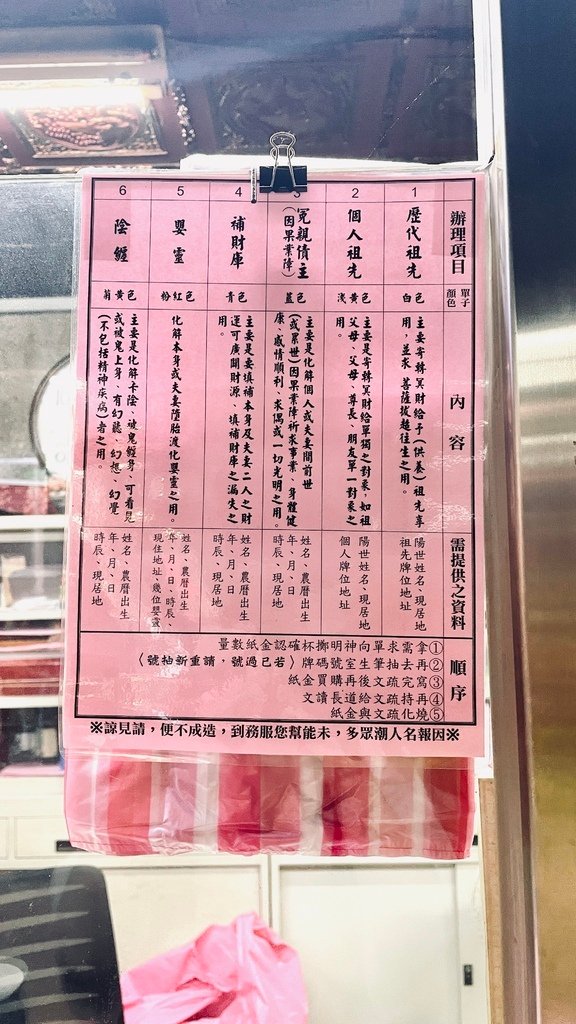 辦理項目
單子顏色
內容
需提供之資料
順序
1
歷代祖先
白色
主要寄轉冥財給予(供養)祖先享
用，並求 菩薩拔超往生之用。
陽世姓名、現居地
祖先牌位地址
2
個人祖先
淺黃色
主要是寄轉冥財給單獨之對象，如祖
父母、父母、尊長、朋友單一對象之
用。
陽世姓名、現居地
個人牌位地址
3
冤親債主
(因果業障)
藍色
主要是化解個人或夫妻間前世
(或累世)因果業障祈求事業、身體健
康、感情順利、求偶或一切光明之用。
姓名、農曆出生
年、月、日
時辰、現居地
4
補財庫
青色
主要是要填補本身及夫妻二人之財
運可廣開財源、填補財庫之漏失之
用。
姓名、農曆出生
年、月、日
時辰、現居地
5
嬰靈
粉紅色
化解本身或夫妻墮胎渡化嬰靈之用。
姓名、農曆出生
年、月、日、時辰、
現住地址、幾位嬰靈
6
陰纏
菊黃色
主要是化解卡陰、被鬼纏身、可看見
或被鬼上身、有幻聽、幻想、幻覺
(不包括精神疾病)者之用。
姓名、農曆出生
年、月、日
時辰、現居地
①拿需求單向神明擲杯確認金紙數量
②再去抽筆生室號碼牌〈若已過號，請重新抽號〉
③寫完疏文後再購買金紙
④再持疏文給道長讀文
⑤燒化疏文與金紙
※因報名人潮眾多，未能幫您服務到，造成不便，請見諒※